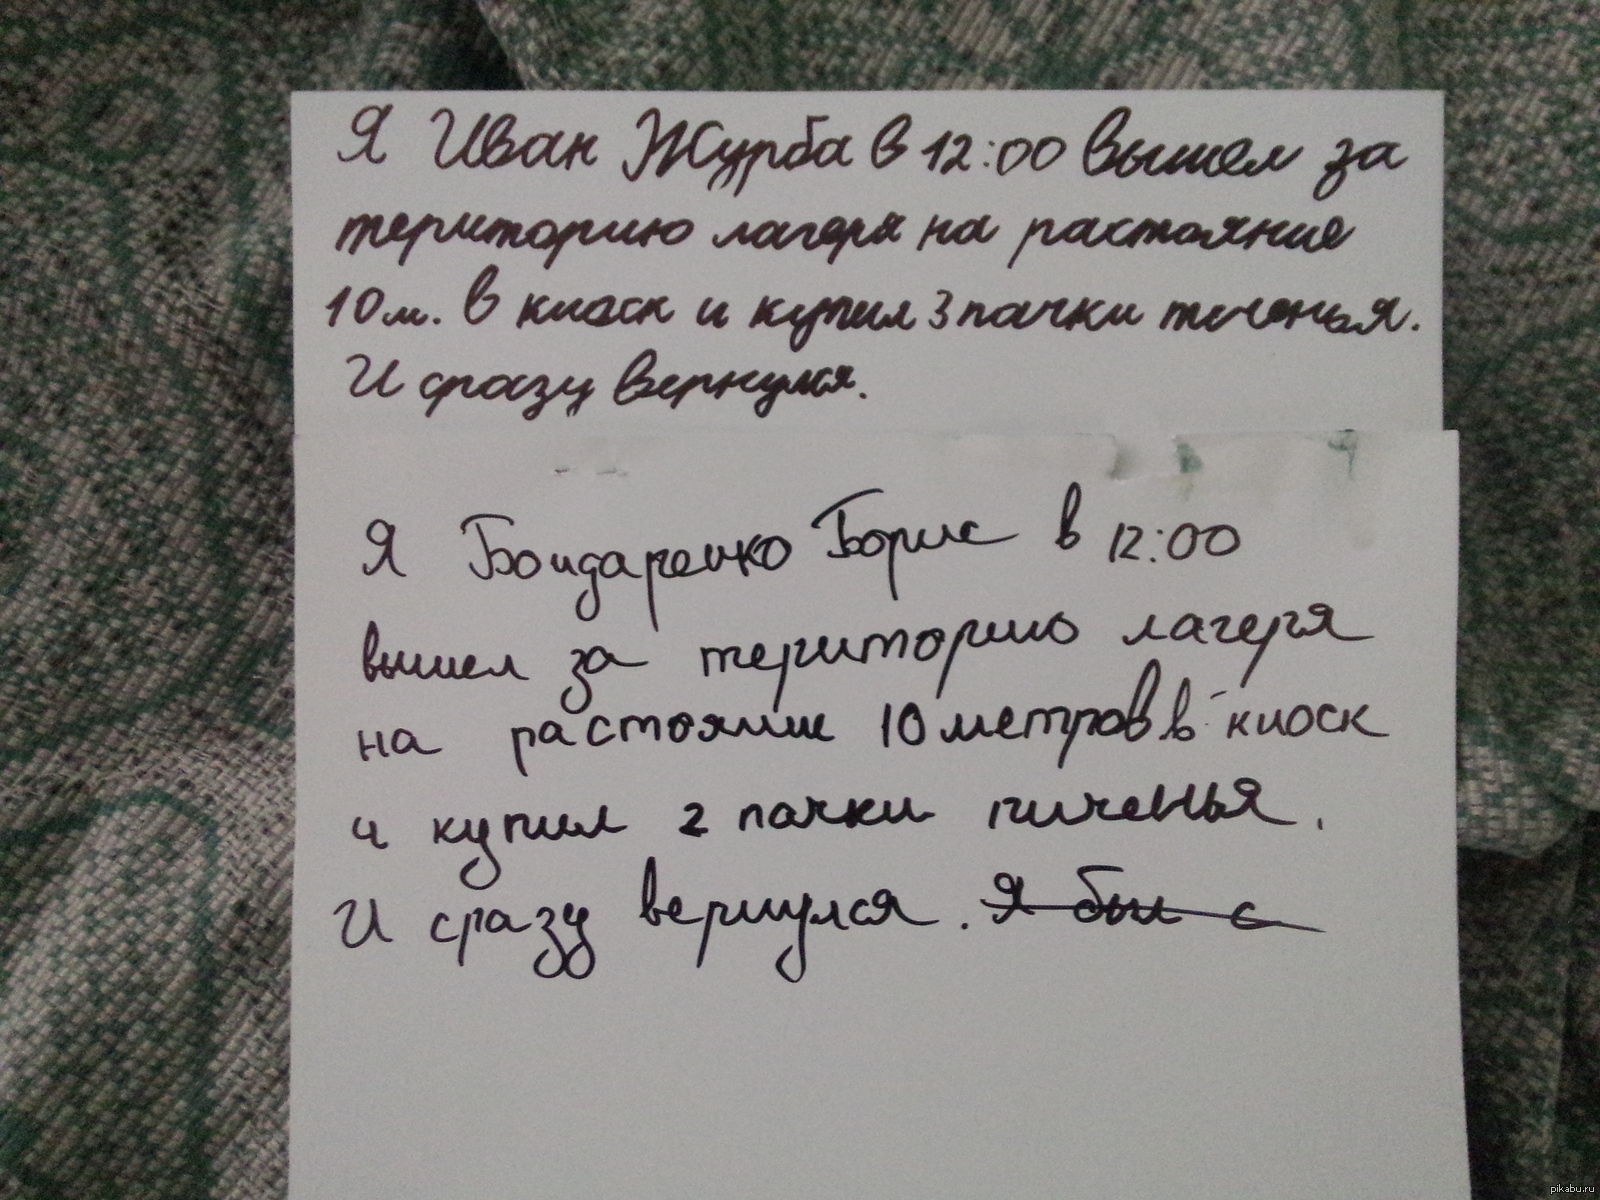 Я Иван Журба в 12:00 вышел за
територию лагеря на растояние
10м. в киоск и купил 3 пачки печенья.
И сразу вернулся.
Я Бондаренко Борис в 12:00
вышел за територию лагеря
на растояние 10 метров в киоск
и купил 2 пачки пиченья.
И сразу вернулся. Я был с
pikabu.ru